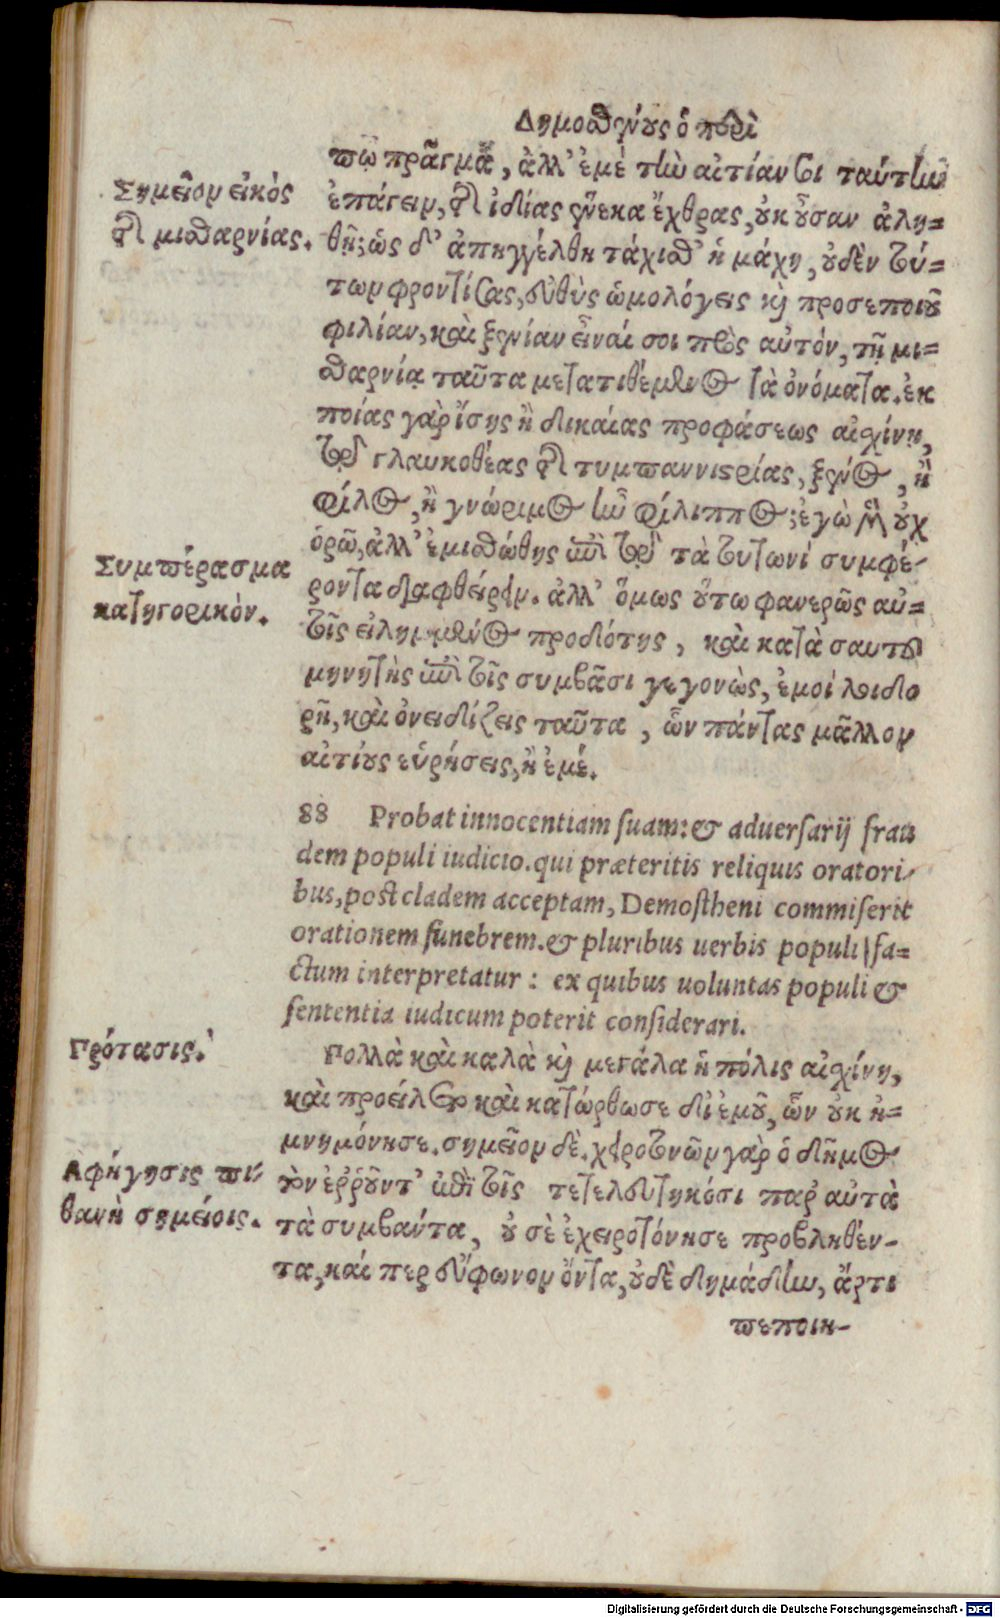 Δημοσθένους ὁ περὶ
πω πρᾶγμα, ἀλλ' ἐμὲ τὴν αἰτίαν σοι ταύτην
Σημεῖον εἰκὸς
ἐπάγειν, διὰ ἰδίας ἕνεκα ἔχθρας, οὐκ οὖσαν ἀλη=
τῆς μισθαρνίας.
θῆ; ὡς δ' ἀπηγγέλθη τάχισθ' ἡ μάχη, οὐδὲν τού=
των φροντίσας, εὐθὺς ὡμολόγεις καὶ προσεποιοῦ
φιλίαν, καὶ ξενίαν εἶναί σοι πρὸς αὐτόν, τῇ μι=
σθαρνίᾳ ταῦτα μετατιθέμενος τὰ ὀνόματα. ἐκ
ποίας γὰρ ἴσης ἢ δικαίας προφάσεως αἰσχίνῃ,
τῷ γλαυκοθέας τῆς τυμπαννιστρίας, ξένος, ἢ
φίλος, ἢ γνώριμος ἦν φίλιππος; ἐγὼ μὲν οὐχ
ὁρῶ, ἀλλ' ἐμισθώθης ἐπὶ τῷ τὰ τουτωνὶ συμφέ-
Συμπέρασμα
ροντα διαφθείρειν. ἀλλ' ὅμως οὕτω φανερῶς αὐ=
κατηγορικὸν.
τοῖς εἰλημμένος προδότης, καὶ κατὰ σαυτοῦ
μηνητὴς ἐπὶ τοῖς συμβᾶσι γεγονὼς, ἐμοὶ λοιδο
ρῇ, καὶ ὀνειδίζεις ταῦτα, ὧν πάντας μᾶλλον
αἰτίους εὑρήσεις, ἢ ἐμέ.
88 Probat innocentiam suam: & aduersarij frau
dem populi iudicio. qui præteritis reliquis oratori-
bus, post cladem acceptam, Demostheni commiserit
orationem funebrem. & pluribus uerbis populi fa=
ctum interpretatur: ex quibus uoluntas populi &
sententia iudicum poterit considerari.
Πρότασις.
Πολλὰ καὶ καλὰ καὶ μεγάλα ἡ πόλις αἰσχίνη,
καὶ προείλετο καὶ κατώρθωσε δι' ἐμοῦ, ὧν οὐκ ἠ=
μνημόνησε. σημεῖον δὲ. χειροτονῶν γὰρ ὁ δῆμος
Ἀφήγησις πι-
τὸν ἐῤῥοῦντ' ἐπὶ τοῖς τετελευτηκόσι παρ' αὐτὰ
θανὴ σημείοις.
τὰ συμβαντα, οὐ σὲ ἐχειροτόνησε προβληθέν-
τα, καί περ εὔφωνον ὄντα, οὐδὲ δημάδην, ἄρτι
πεποιη-
Digitalisierung gefördert durch die Deutsche Forschungsgemeinschaft - DFG